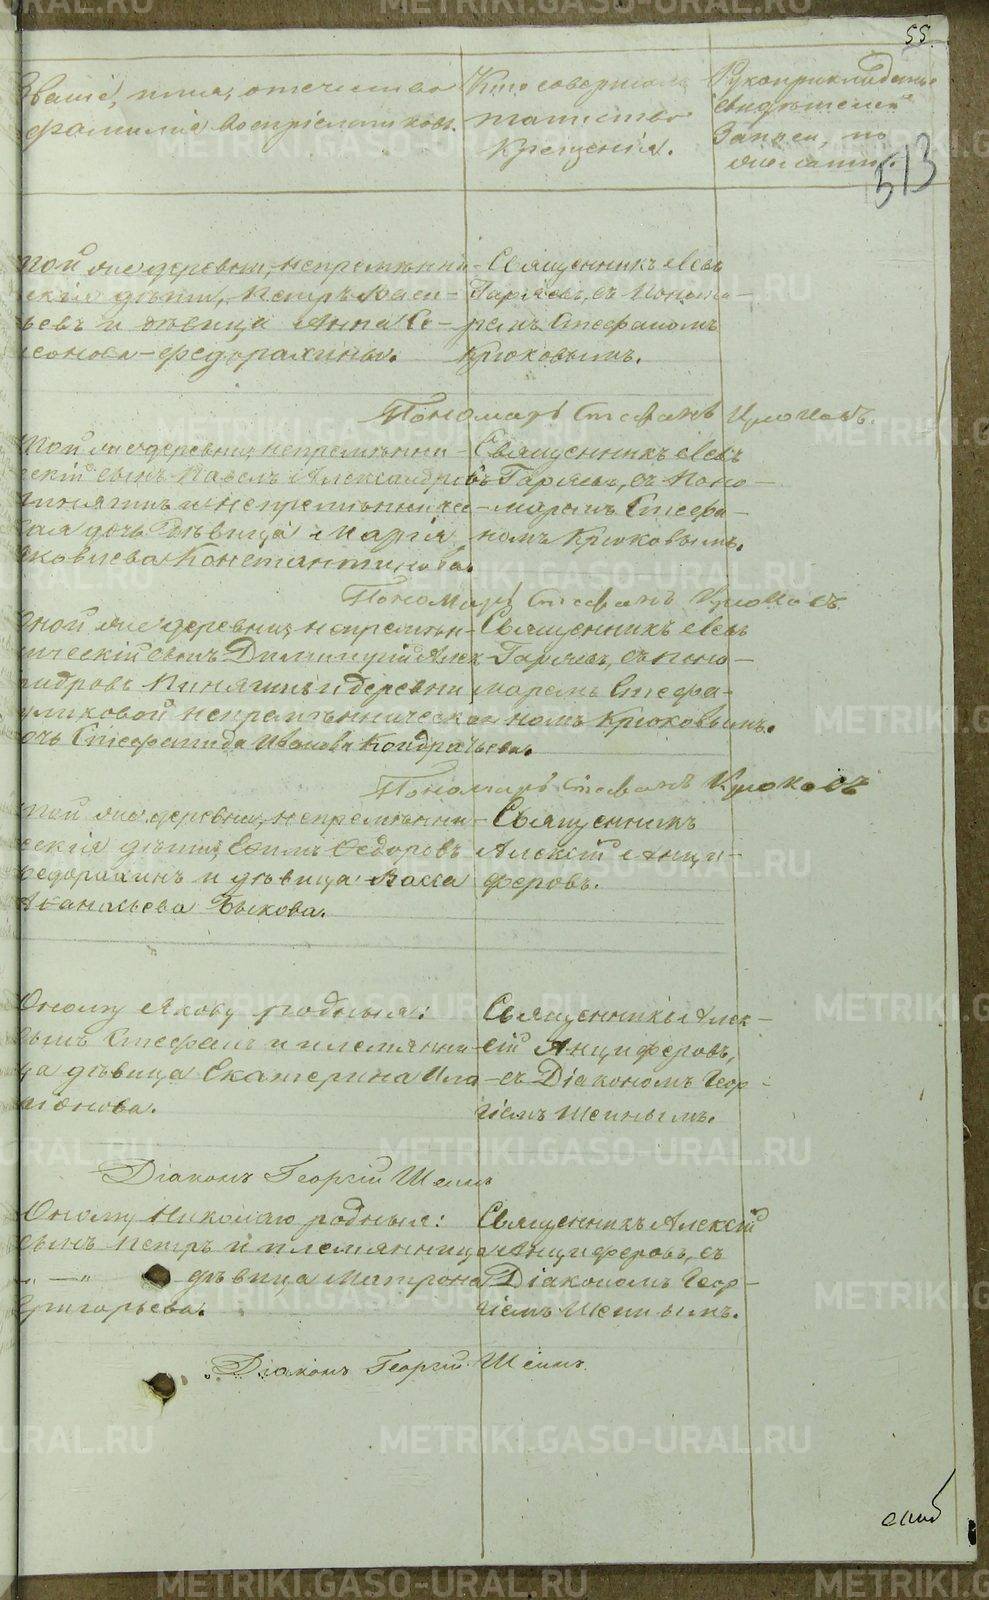 55.
513
Званіе, имя, отчество
фамилія воспріемниковъ.
Кто совершалъ
таинство
Крещенія.
Рукоприкладство
свидѣтелей
записи, по
желанію.
той же деревни, непремѣнни-
скія дѣти, Петръ Васи-
ьевъ и дѣвица Анна Се-
еонова Федорахины.
Священникъ Левъ
Гаряевъ, съ Понома-
ремъ Стефаномъ
Крюковымъ.
Пономарь Стефанъ Крюковъ.
той же деревни непремѣнни-
ескій сынъ Павелъ Александровъ
инягинъ и непремѣнниче-
кая дочь дѣвица Марія
Яковлева Константинова.
Священникъ Левъ
Гаряевъ, съ Поно-
маремъ Стефа-
номъ Крюковымъ.
Пономарь Стефанъ Крюковъ.
оной же деревни, непремѣн-
ническій сынъ Димитрій Алек-
андровъ Пинягинъ и деревни
уликовой непремѣнническая
очь Стефанида Иванова Кондратьева.
Священникъ Левъ
Гаряевъ, съ поно-
маремъ Стефа-
номъ Крюковымъ.
Пономарь Стефанъ Крюковъ
той же деревни, непремѣнни-
ескія дѣти, Ефимъ Федоровъ
едорахинъ и дѣвица Васса
Афанасьева Быкова.
Священникъ
Алексій Анци-
феровъ.
Оному Якову родныя:
сынъ Стефанъ и племянни-
ца дѣвица Екатерина Ила-
ріонова.
Священникъ Алек-
сій Анциферовъ,
съ Діакономъ Геор-
гіемъ Шеинымъ.
Діаконъ Георгій Шеинъ
Оному Николаю родныя:
сынъ Петръ и племянница
дѣвица Матрона
Григорьева.
Священникъ Алексій
Анциферовъ, съ
Діакономъ Геор-
гіемъ Шеинымъ.
Діаконъ Георгій Шеинъ.
METRIKI.GASO-URAL.RU